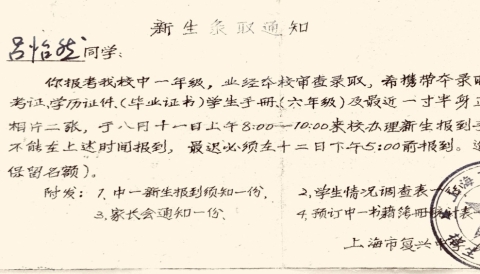 新生录取通知
吕怡然同学:
你报考我校中一年级，业经本校审查录取，希携带本录取
考证、学历证件、(毕业证书)学生手册、(六年级)及最近一寸半身正
相片二张，于八月十一日上午8:00—10:00来校办理新生报到手
不能在上述时间报到，最迟必须在十二日下午5:00前报到。逾
保留名额)。
附发: 1.中一新生报到须知一份. 2.学生情况调查表一
3.家长会通知一份. 4.预订中一书籍簿册统计表一
上海市复兴
上海